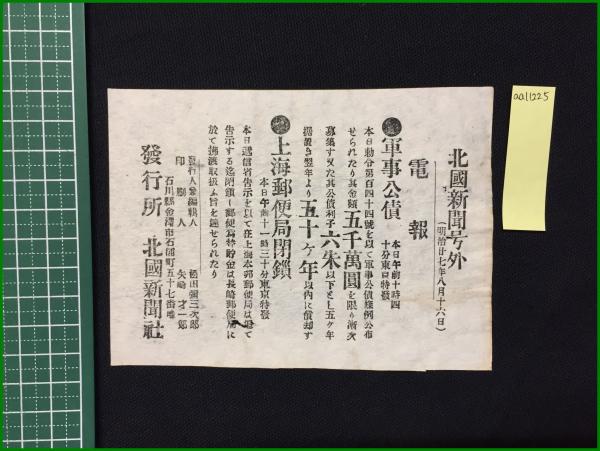 北國新聞号外
（明治廿七年八月十六日）
電報
軍事公債
本日午前十時四
十分東京特發
本日勅令第百四十四號を以て軍事公債條例公布
せられたり其金額五千萬圓を限り漸次
募集す又た其公債利子六朱以下とし五ケ年
据置き翌年より五十ケ年以内に償却す
上海郵便局閉鎖
本日午前十一時三十分東京特發
本日遞信省告示を以て在上海本邦郵便局は追て
告示する迄閉鎖し郵便爲替貯金は長崎郵便局に
於て拂渡取扱ふ旨を達せられたり
發行人兼編輯人
松田彌三次郎
印刷人
矢崎才一郎
石川縣金澤市石浦町五十七番地
發行所 北國新聞社
aa11225